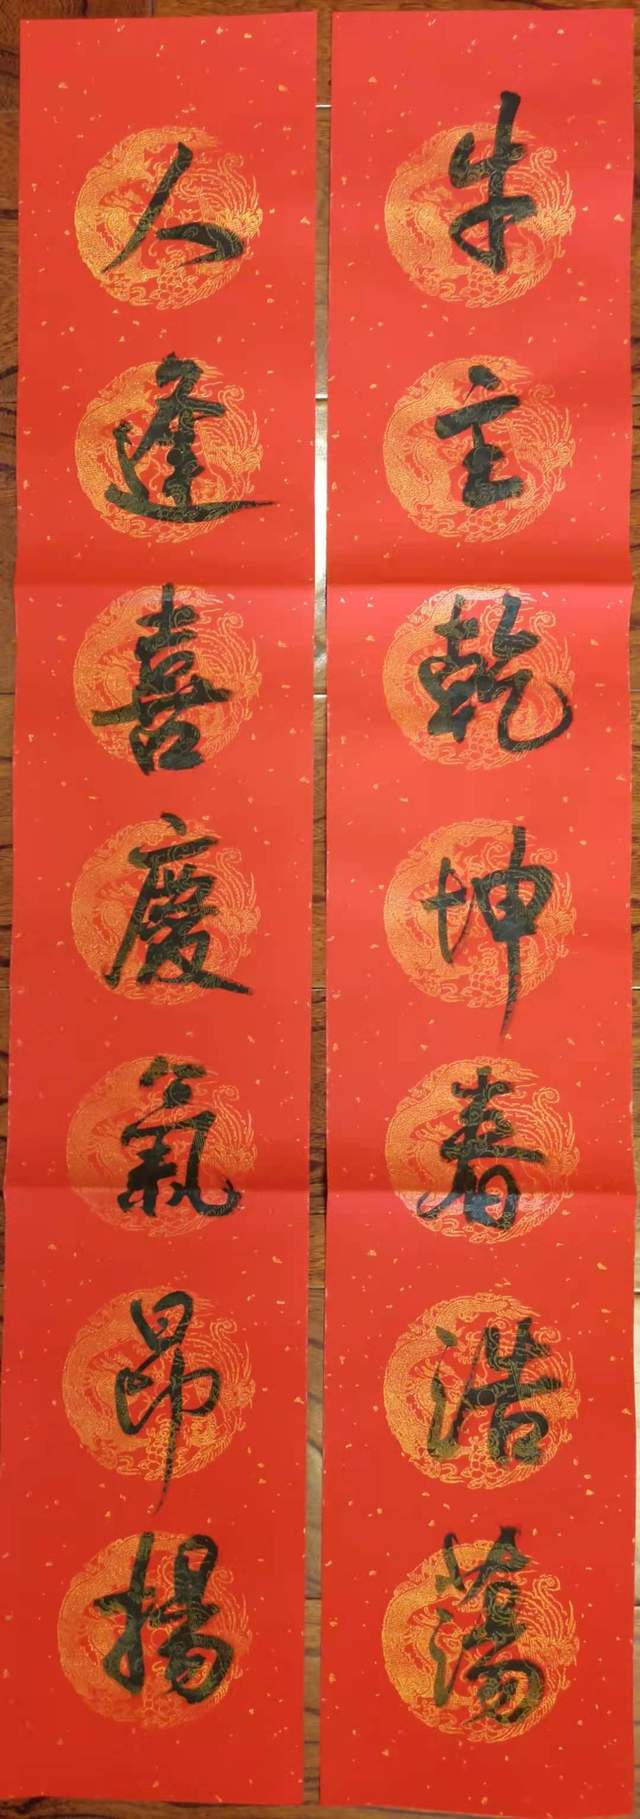 牛主乾坤春浩蕩
人逢喜慶氣昂揚